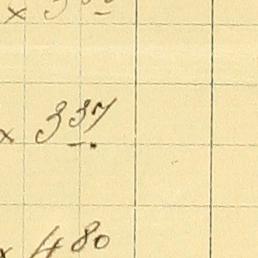 x 337
x 480